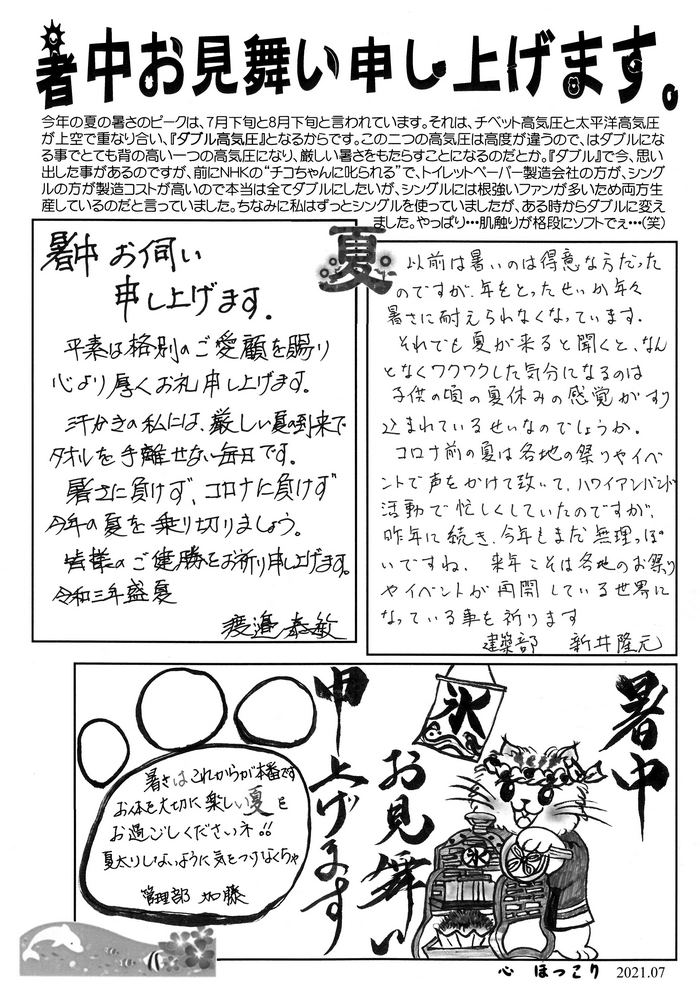 暑中お見舞い申し上げます。
今年の夏の暑さのピークは、7月下旬と8月下旬と言われています。それは、チベット高気圧と太平洋高気圧
が上空で重なり合い、『ダブル高気圧』となるからです。この二つの高気圧は高度が違うので、はダブルにな
る事でとても背の高い一つの高気圧になり、厳しい暑さをもたらすことになるのだとか。『ダブル』で今、思い
出した事があるのですが、前にNHKの“チコちゃんに叱られる”で、トイレットペーパー製造会社の方が、シング
ルの方が製造コストが高いので本当は全てダブルにしたいが、シングルには根強いファンが多いため両方生
産しているのだと言っていました。ちなみに私はずっとシングルを使っていましたが、ある時からダブルに変え
ました。やっぱり・・・肌触りが格段にソフトでぇ・・・(笑)
夏
暑中お伺い
申し上げます.
平素は格別のご愛顧を賜り
心より厚くお礼申し上げます。
汗かきの私には、厳しい夏の到来で
タオルを手離せない毎日です。
暑さに負けず、コロナに負けず
今年の夏を乗り切りましょう。
皆様のご健勝をお祈り申し上げます。
令和三年盛夏
渡邉 泰敏
以前は暑いのは得意な方だった
のですが、年をとったせいか年々
暑さに耐えられなくなっています.
それでも夏が来ると聞くと、なん
となくワクワクした気分になるのは
子供の頃の夏休みの感覚がすり
込まれているせいなのでしょうか.
コロナ前の夏は各地の祭りやイベ
ントで声をかけて頂いて、ハワイアンバンド
活動で忙しくしていたのですが、
昨年に続き、今年もまだ無理っぽ
いですね. 来年こそは各地のお祭り
やイベントが再開している世界に
なっている事を祈ります
建築部 新井隆元
暑中
お見舞い
申し上げます
氷
氷
暑さはこれからが本番です
お体を大切に楽しい夏を
お過ごしくださいネ!!
夏太りしないように気をつけなくちゃ
管理部 加藤
心 ほっこり 2021.07